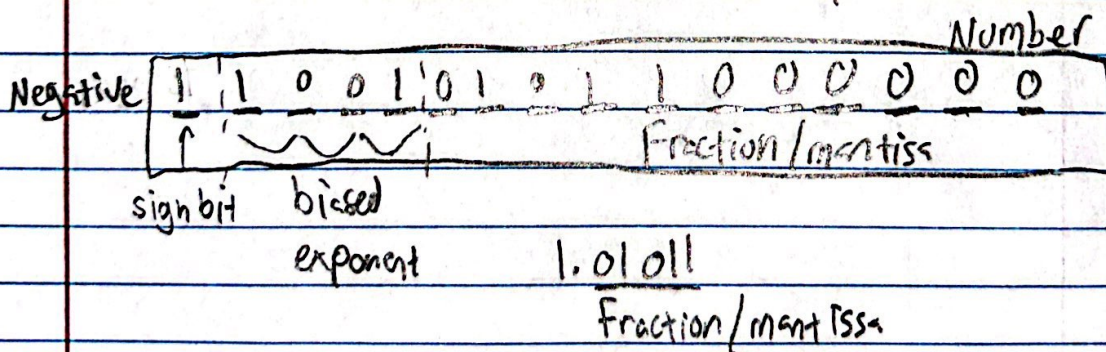 Number
Negative 1 1 0 0 1 0 1 0 1 1 0 0 0 0 0 0
Fraction/mantiss
sign bit biased
exponent 1.01011
Fraction/mantissa